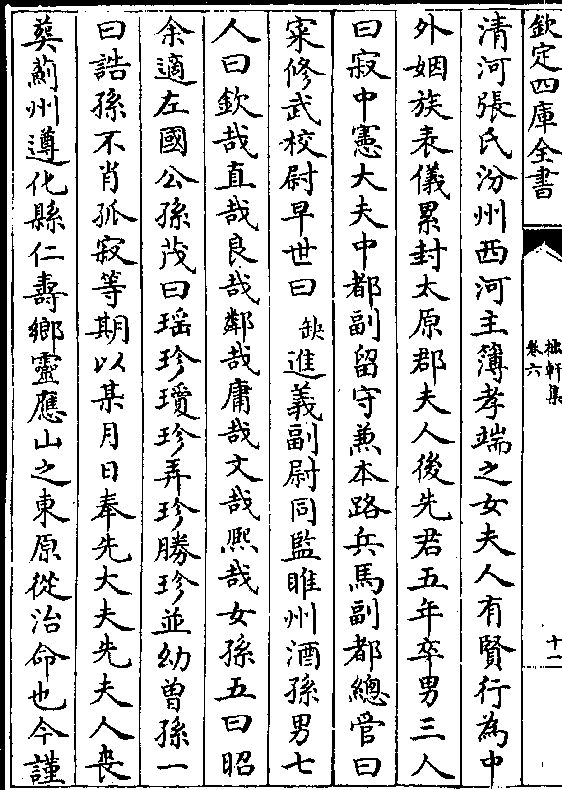 欽定四庫全書
拙軒集
卷六
十一
清河張氏汾州西河主簿孝端之女夫人有賢行為中
外姻族表儀累封太原郡夫人後先君五年卒男三人
曰寂中憲大夫中都副留守兼本路兵馬副都總管曰
寀修武校尉早世曰缺進義副尉同監睢州酒孫男七
人曰欽哉直哉良哉鄰哉庸哉文哉熈哉女孫五曰昭
余適左國公孫茂曰瑶珍瓊珍弄珍勝珍並幼曾孫一
曰誥孫不肖孤寂等期以某月日奉先大夫先夫人喪
葬薊州遵化縣仁壽鄉靈應山之東原從治命也今謹